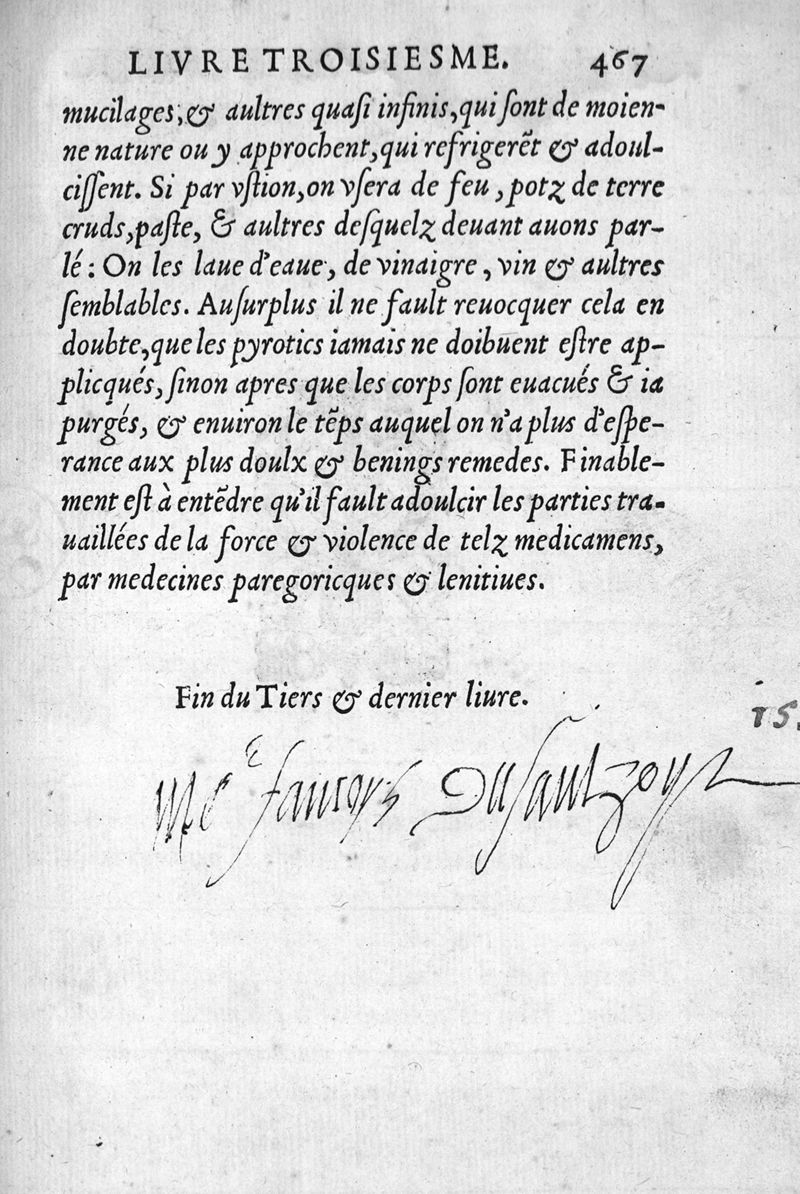 LIVRE TROISIESME. 467
mucilages, & aultres quaſi infinis, qui ſont de moien-
ne nature ou y approchent, qui refrigerẽt & adoul-
ciſſent. Si par vſtion, on vſera de feu, potz de terre
cruds, paſte, & aultres deſquelz deuant auons par-
lé : On les laue d'eaue, de vinaigre, vin & aultres
ſemblables. Auſurplus il ne fault reuocquer cela en
doubte, que les pyrotics iamais ne doibuent eſtre ap-
plicqués, ſinon apres que les corps ſont euacués & ia
purgés, & enuiron le tẽps auquel on n'a plus d'eſpe-
rance aux plus doulx & benings remedes. Finable-
ment eſt à entẽdre qu'il fault adoulcir les parties tra-
uaillées de la force & violence de telz medicamens,
par medecines paregoricques & lenitiues.
Fin du Tiers & dernier liure.
15.